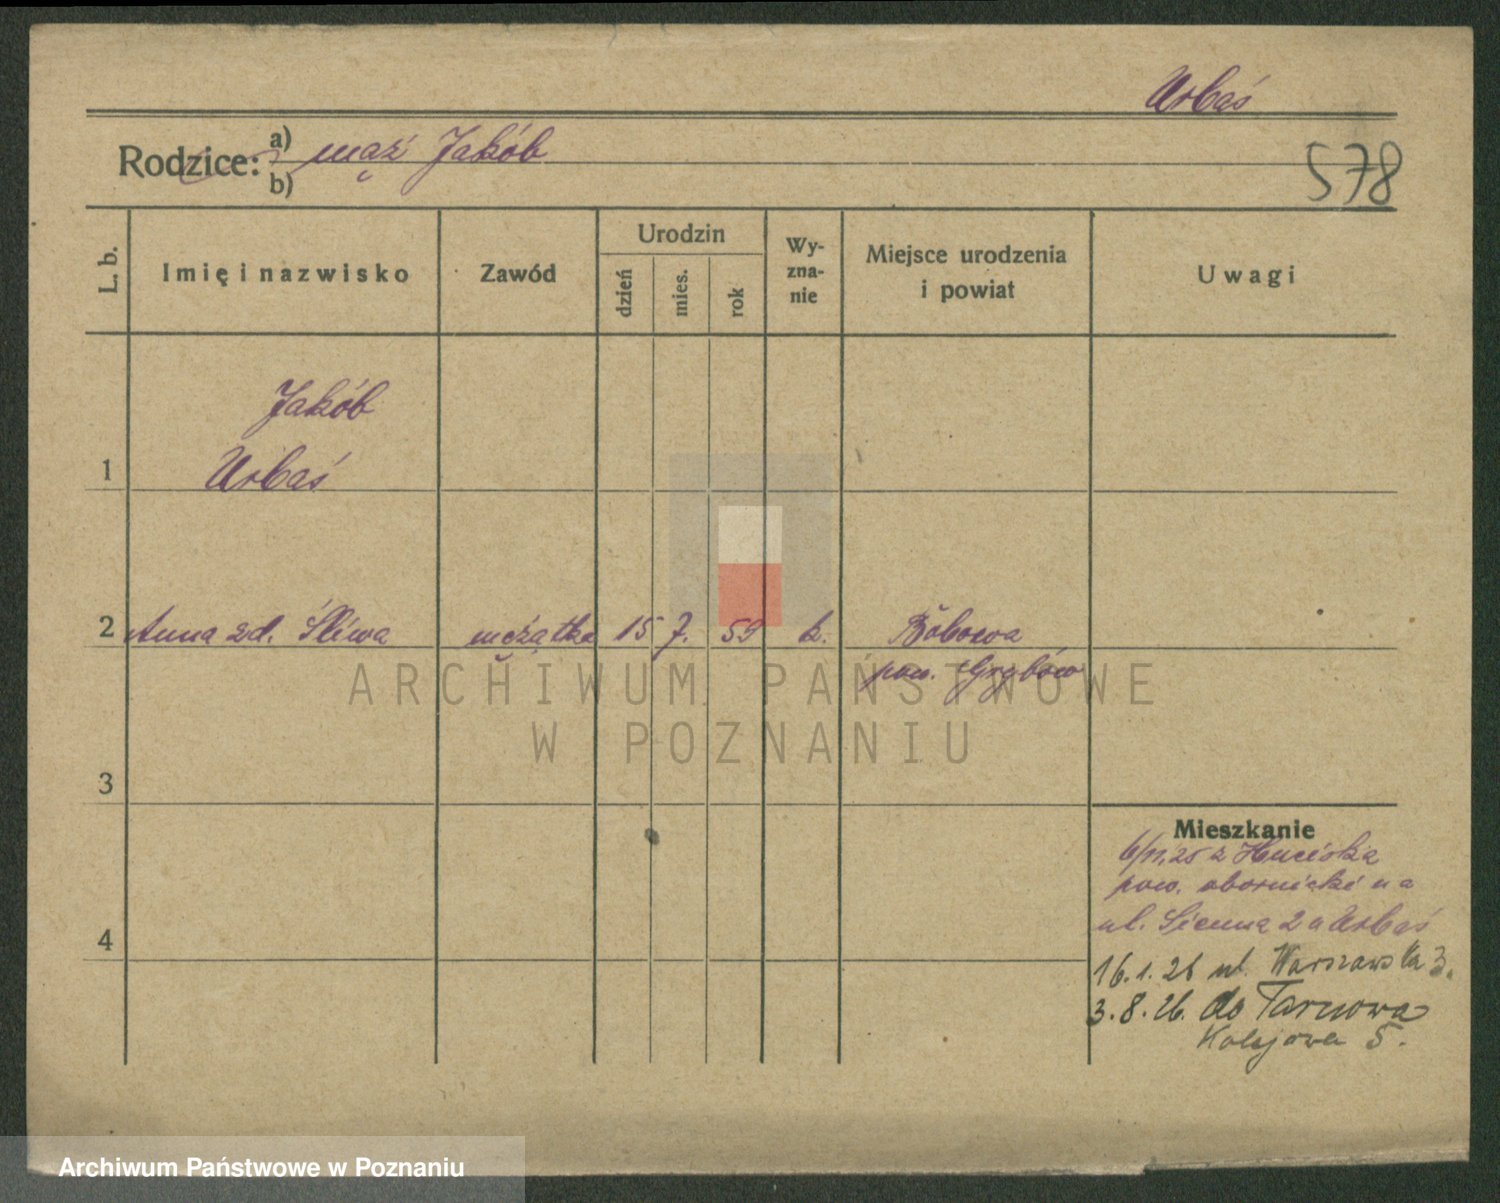 Urbaś
Rodzice: a) mąż Jakób
b)
578
L. b. Imię i nazwisko Zawód Urodzin dzień mies. rok Wy-zna-nie Miejsce urodzenia i powiat Uwagi
Jakób
1 Urbaś
2 Anna zd. Śliwa mężatka 15 7. 59 k. Bobowa
pow. Grybów
ARCHIWUM PAŃSTWOWE
W POZNANIU
3
Mieszkanie
6/11.25 z Huciska
pow. obornicki na
ul. Sienna 2 u Urbaś
4
16.1.26 ul. Warszawska 3.
3.8.26. do Tarnowa
Kolejowa 5.
Archiwum Państwowe w Poznaniu